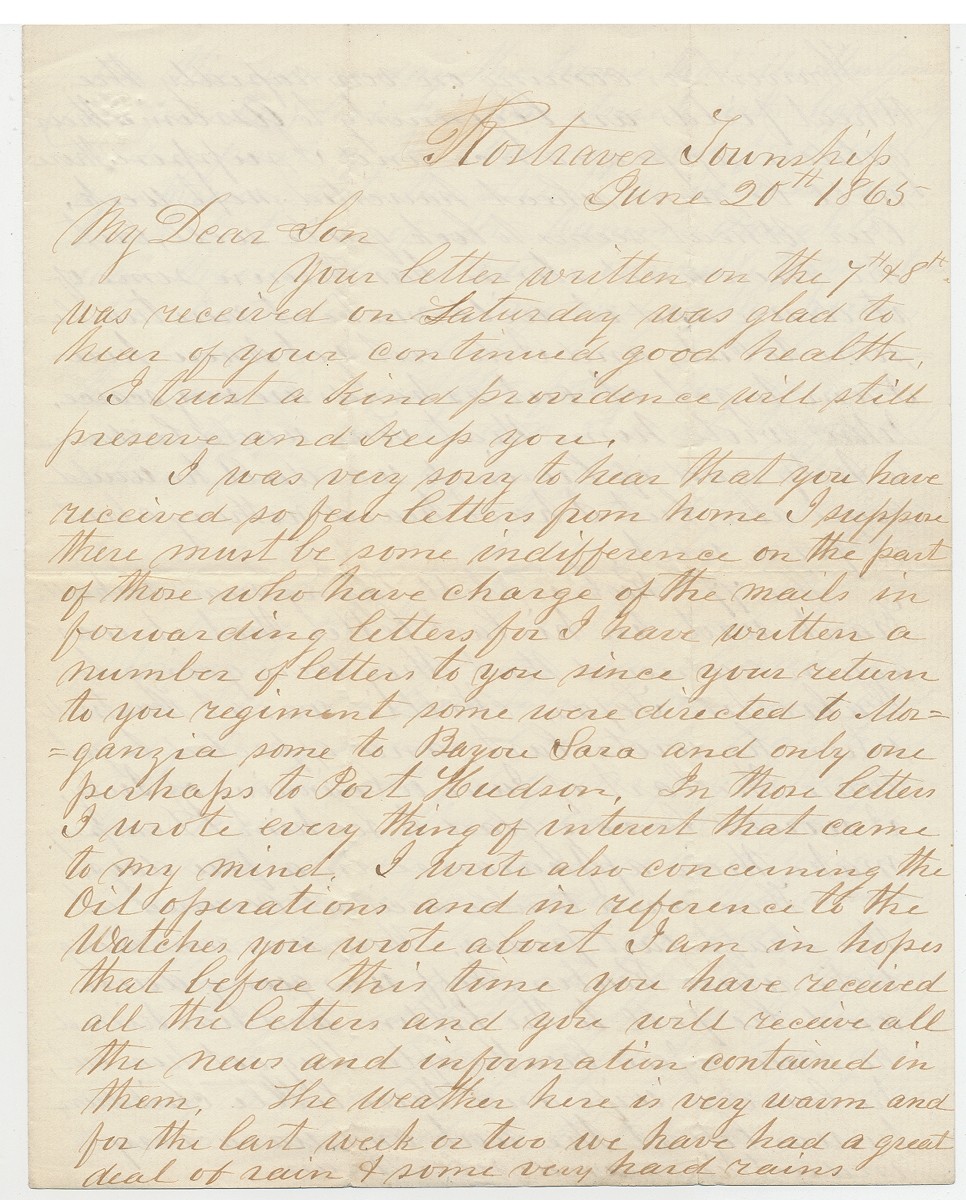 Rostraver Township
June 20th 1865
My Dear Son
Your letter written on the 7th & 8th
was received on Saturday was glad to
hear of your continued good health,
I trust a kind providence will still
preserve and keep you.
I was very sorry to hear that you have
received so few letters from home I suppose
there must be some indifference on the part
of those who have charge of the mails in
forwarding letters for I have written a
number of letters to you since your return
to you regiment some were directed to Mor=
=ganzia some to Bayou Sara and only one
perhaps to Port Hudson, In those letters
I wrote every thing of interest that came
to my mind. I wrote also concerning the
Oil operations and in reference to the
Watches you wrote about I am in hopes
that before this time you have received
all the letters and you will receive all
the news and information contained in
them, The weather here is very warm and
for the last week or two we have had a great
deal of rain & some very hard rains